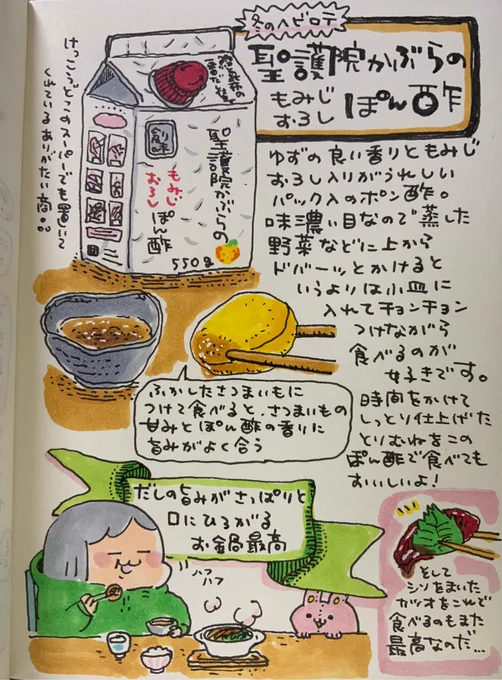 冬のヘビロテ
聖護院かぶらの
もみじ
おろし
ぽん酢
けっこうどこのスーパーでも置いて
くれているありがたい商品
聖護院かぶらの
もみじ
おろし
ぽん酢
550g
ゆずの良い香りともみじ
おろし入りがうれしい
パック入のポン酢。
味濃い目なので蒸した
野菜などに上から
ドバーッとかけると
いうよりは小皿に
入れてチョンチョン
つけながら
食べるのが
好きです。
時間をかけて
しっとり仕上げた
とりむねをこの
ぽん酢で食べても
おいしいよ!
ふかしたさつまいもに
つけて食べると、さつまいもの
甘みとぽん酢の香りに
旨みがよく合う
だしの旨みがさっぱりと
口にひろがる
お鍋最高
ハフ
ハフ
そして
シソをまいた
カツオをこれで
食べるのもまた
最高なのだ…